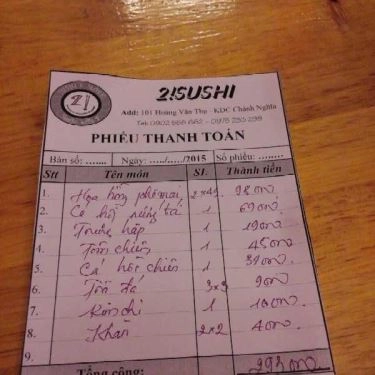 2!SUSHI
Add: 101 Hoàng Văn Thụ - KDC Chánh Nghĩa
PHIẾU THANH TOÁN
Bàn số: ....... Ngày: ...../...../2015 Số phiếu: ........
Stt Tên món SL Thành tiền
1. phô mai 98000
2. Cá hồi nướng tá 1 69000
3. Trứng hấp 1 19000
4. Tôm chiên 1 45000
5. Cá hồi chiên 1 39000
6. Trà đá 3x3 9000
7. Kim chi 1 10000
8. Khăn 2x2 4000
9.
Tổng cộng: 293000